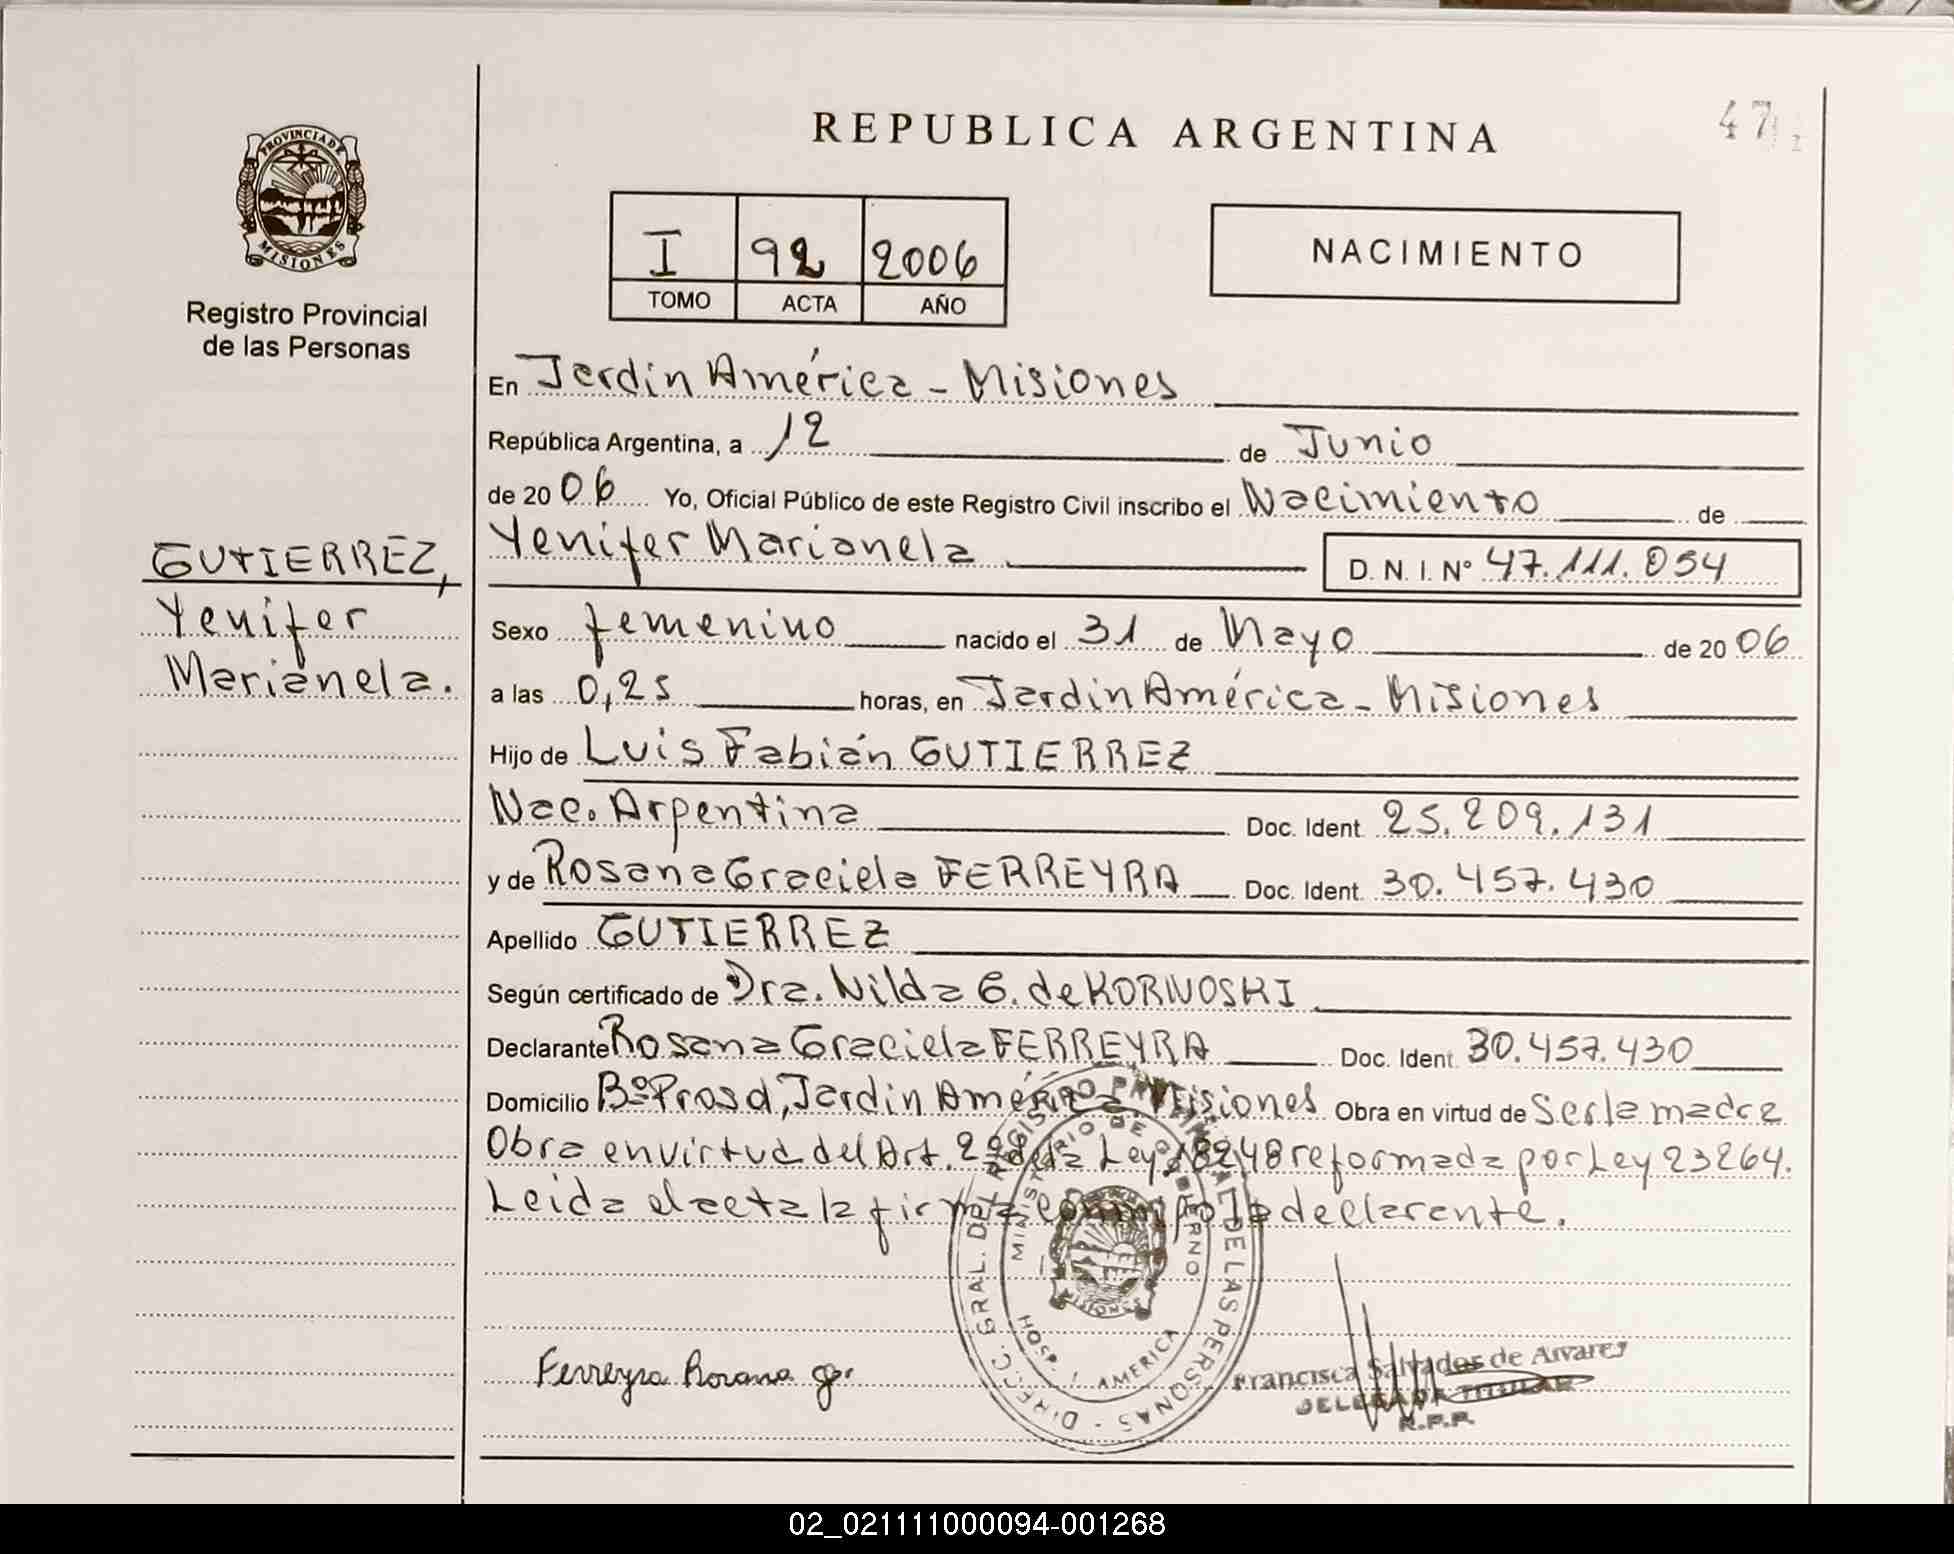 REPUBLICA ARGENTINA
47
PROVINCIA DE MISIONES
Registro Provincial
de las Personas
I 92 2006
TOMO ACTA AÑO
NACIMIENTO
GUTIERREZ,
Yenifer
Marianela.
En Jardín América - Misiones
República Argentina, a 12 de Junio
de 2006 Yo, Oficial Público de este Registro Civil inscribo el Nacimiento de
Yenifer Marianela D. N. I. N° 47.111.054
Sexo femenino nacido el 31 de Mayo de 2006
a las 0,25 horas, en Jardín América - Misiones
Hijo de Luis Fabián GUTIERREZ
Nac. Argentina Doc. Ident. 25.209.131
y de Rosana Graciela FERREYRA Doc. Ident. 30.457.430
Apellido GUTIERREZ
Según certificado de Dra. Nilda G. de KORNOSKI
Declarante Rosana Graciela FERREYRA Doc. Ident. 30.457.430
Domicilio Bº Prosol, Jardín América - Misiones Obra en virtud de Ser la madre
Obra en virtud del Art. de la Ley 18248 reformada por Ley 23264.
Leida el acta la firma conmigo la declarante.
DIRECC. GRAL. DEL REGISTRO PROVINCIAL DE LAS PERSONAS
MINISTERIO DE GOBIERNO
HOSP. J. AMERICA
MISIONES
Ferreyra Rosana gr.
Francisca Salvados de Alvarez
DELEGADA TITULAR
R.P.P.
02_021111000094-001268